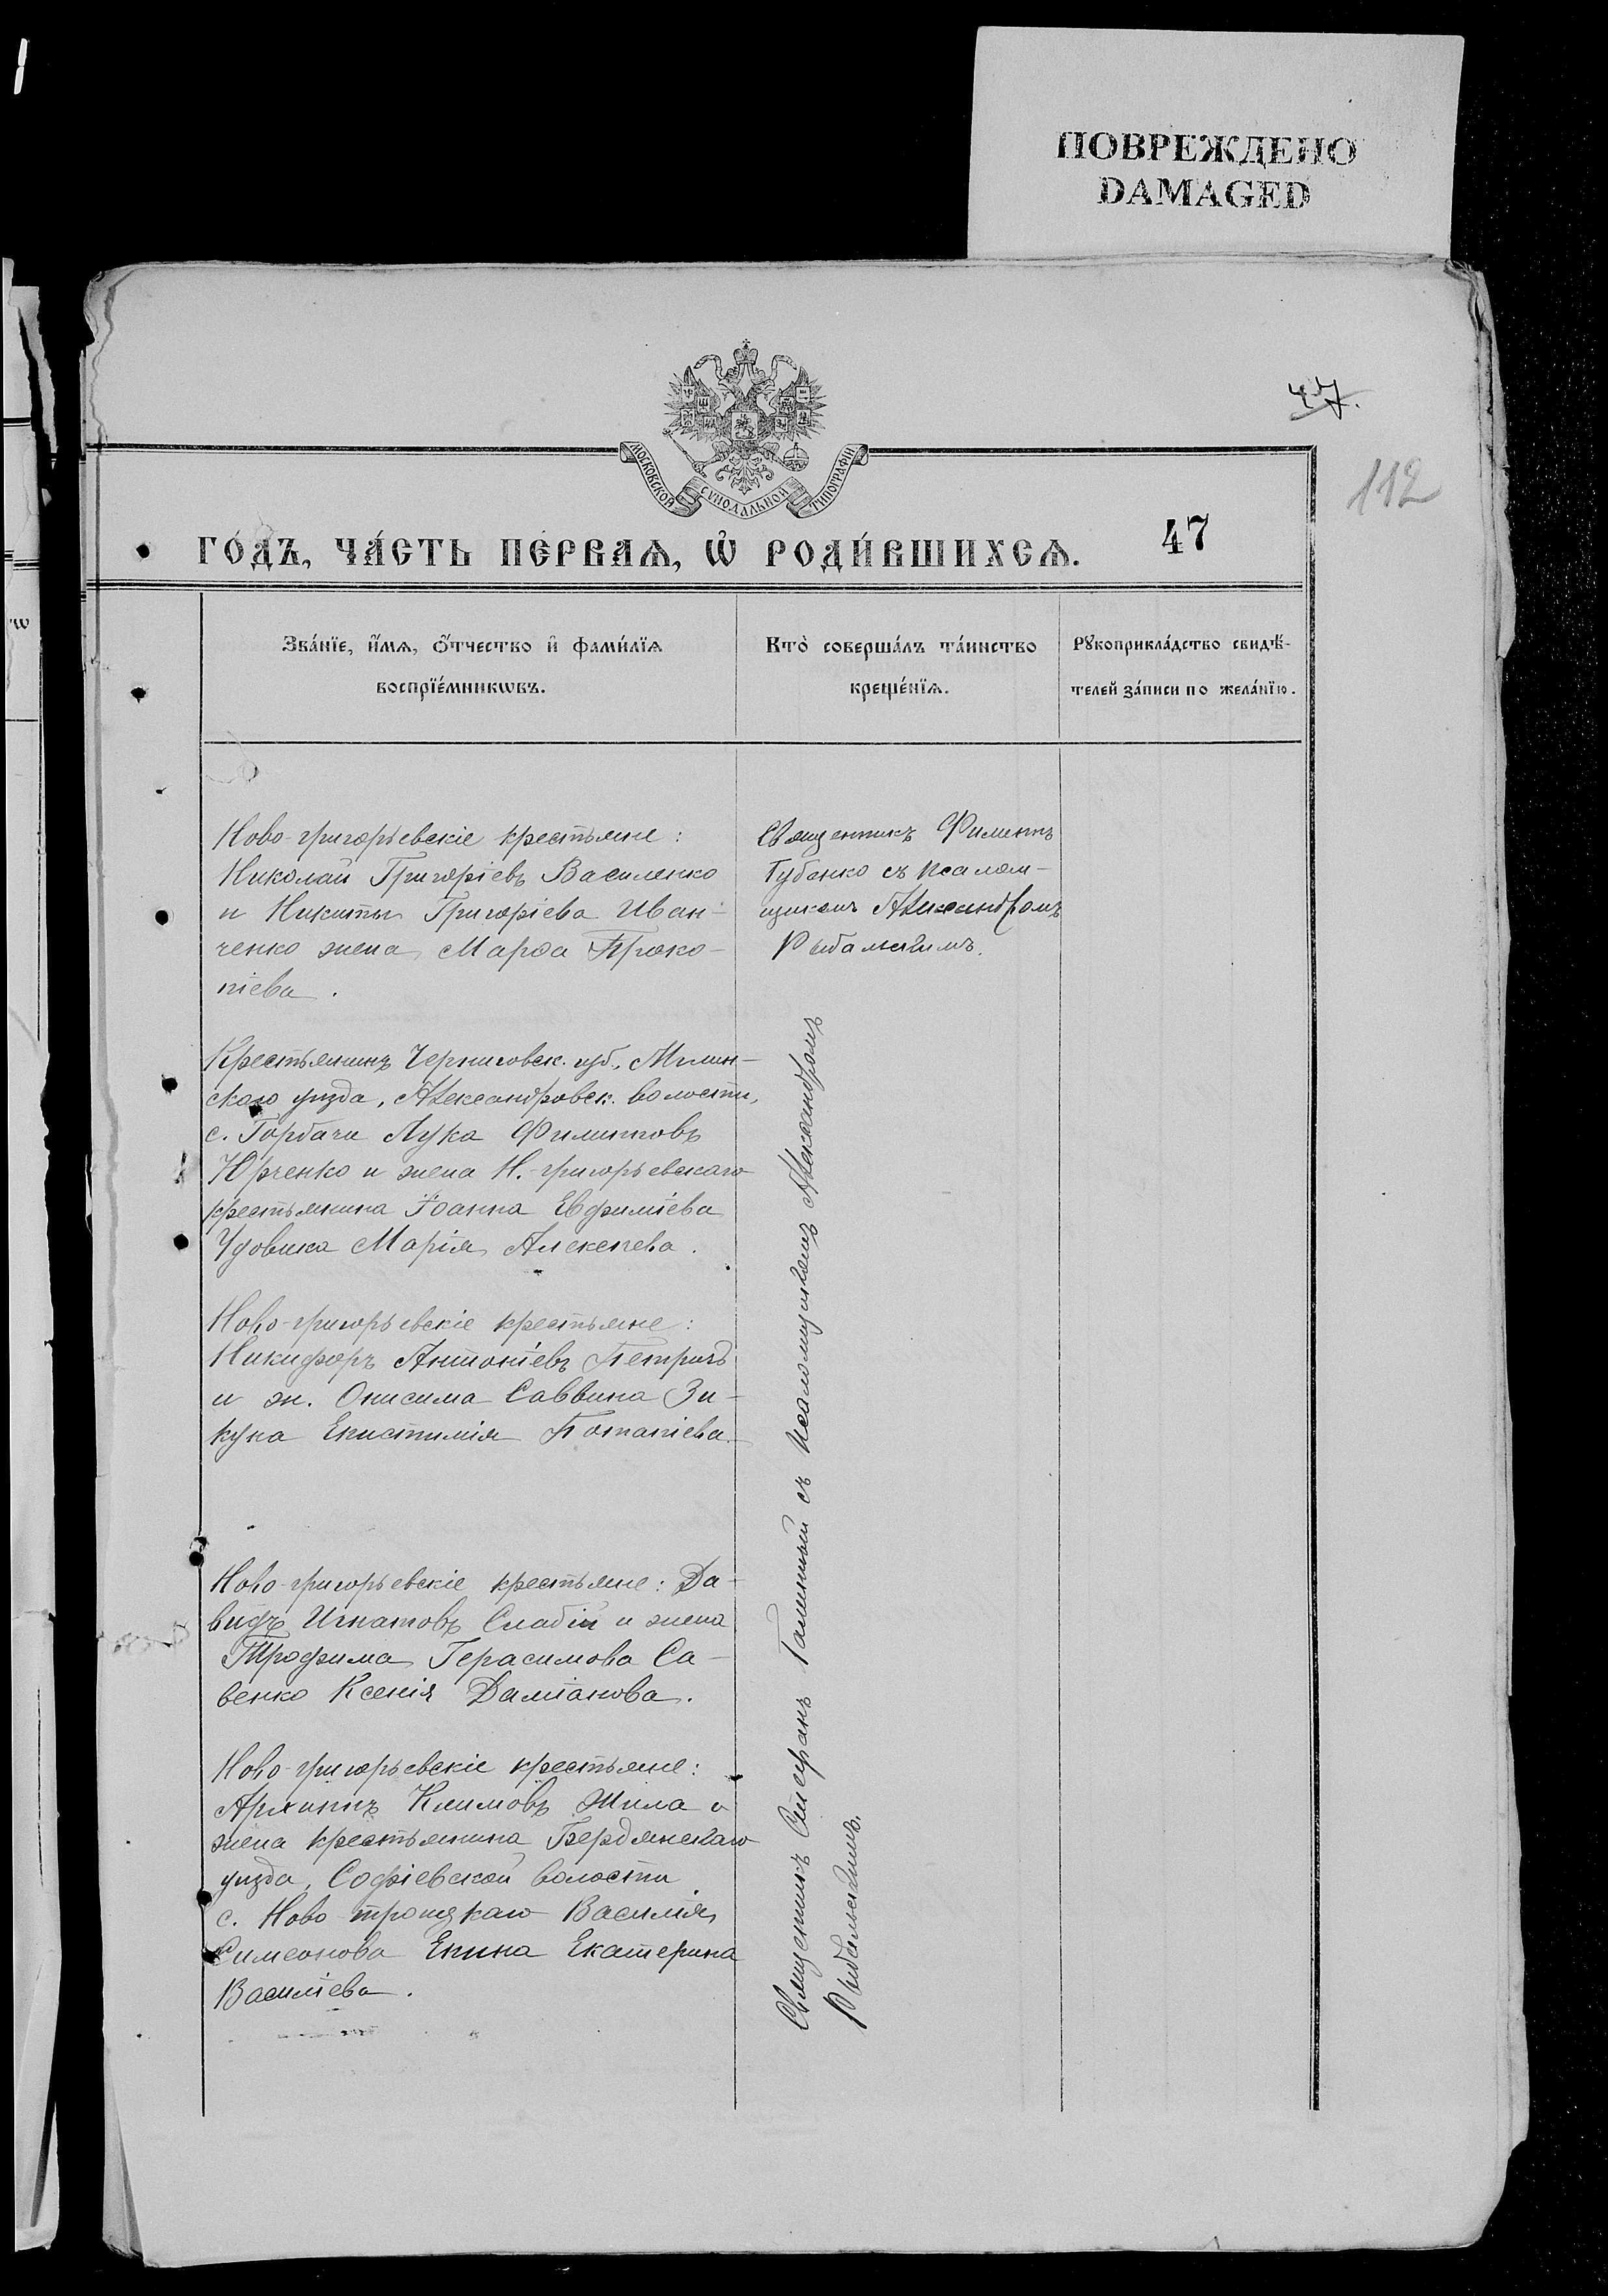 ПОВРЕЖДЕНО
DAMAGED
47.
112
МОСКОВСКОЙ СѴНОДАЛЬНОЙ ТИПОГРАФІИ
ГО́ДЪ, ЧА́СТЬ ПЕ́РВАѦ, Ѡ҆ РОДИ́ВШИХСѦ.
47
Зва́нїе, и҆́мѧ, ѻ҆́тчество и҆ фами́лїѧ
воспрїе́мникѡвъ.
Кто̀ соверша́лъ та́инство
креще́нїѧ.
Рꙋкоприкла́дство свидѣ́-
телей за́писи по жела́нїю.
Ново-григорьевскіе крестьяне:
Николай Григоріевъ Василенко
и Никиты Григоріева Иван-
ченко жена Марѳа Проко-
піева.
Священникъ Филиппъ
Губенко съ псалом-
щикомъ Александромъ
Рыбальскимъ.
Крестьянинъ Черниговск. губ., Мглин-
скаго уѣзда, Александровск. волости,
с. Горбачи Лука Филипповъ
Юрченко и жена Н.-григорьевскаго
крестьянина Іоанна Евфиміева
Удовика Марія Алексѣева.
Ново-григорьевскіе крестьяне:
Никифоръ Антоніевъ Петричъ
и ж. Онисима Саввина Зи-
куна Епистимія Потапіева.
Ново-григорьевскіе крестьяне: Да-
видъ Игнатовъ Слабій и жена
Трофима Герасимова Са-
венко Ксенія Даміанова.
Ново-григорьевскіе крестьяне:
Архиппъ Климовъ Жила и
жена крестьянина Бердянскаго
уѣзда, Софіевской волости
с. Ново-троицкаго Василія
Симеонова Енина Екатерина
Василіева.
Священникъ Стефанъ съ псаломщикомъ Александромъ
Рыбальскимъ.